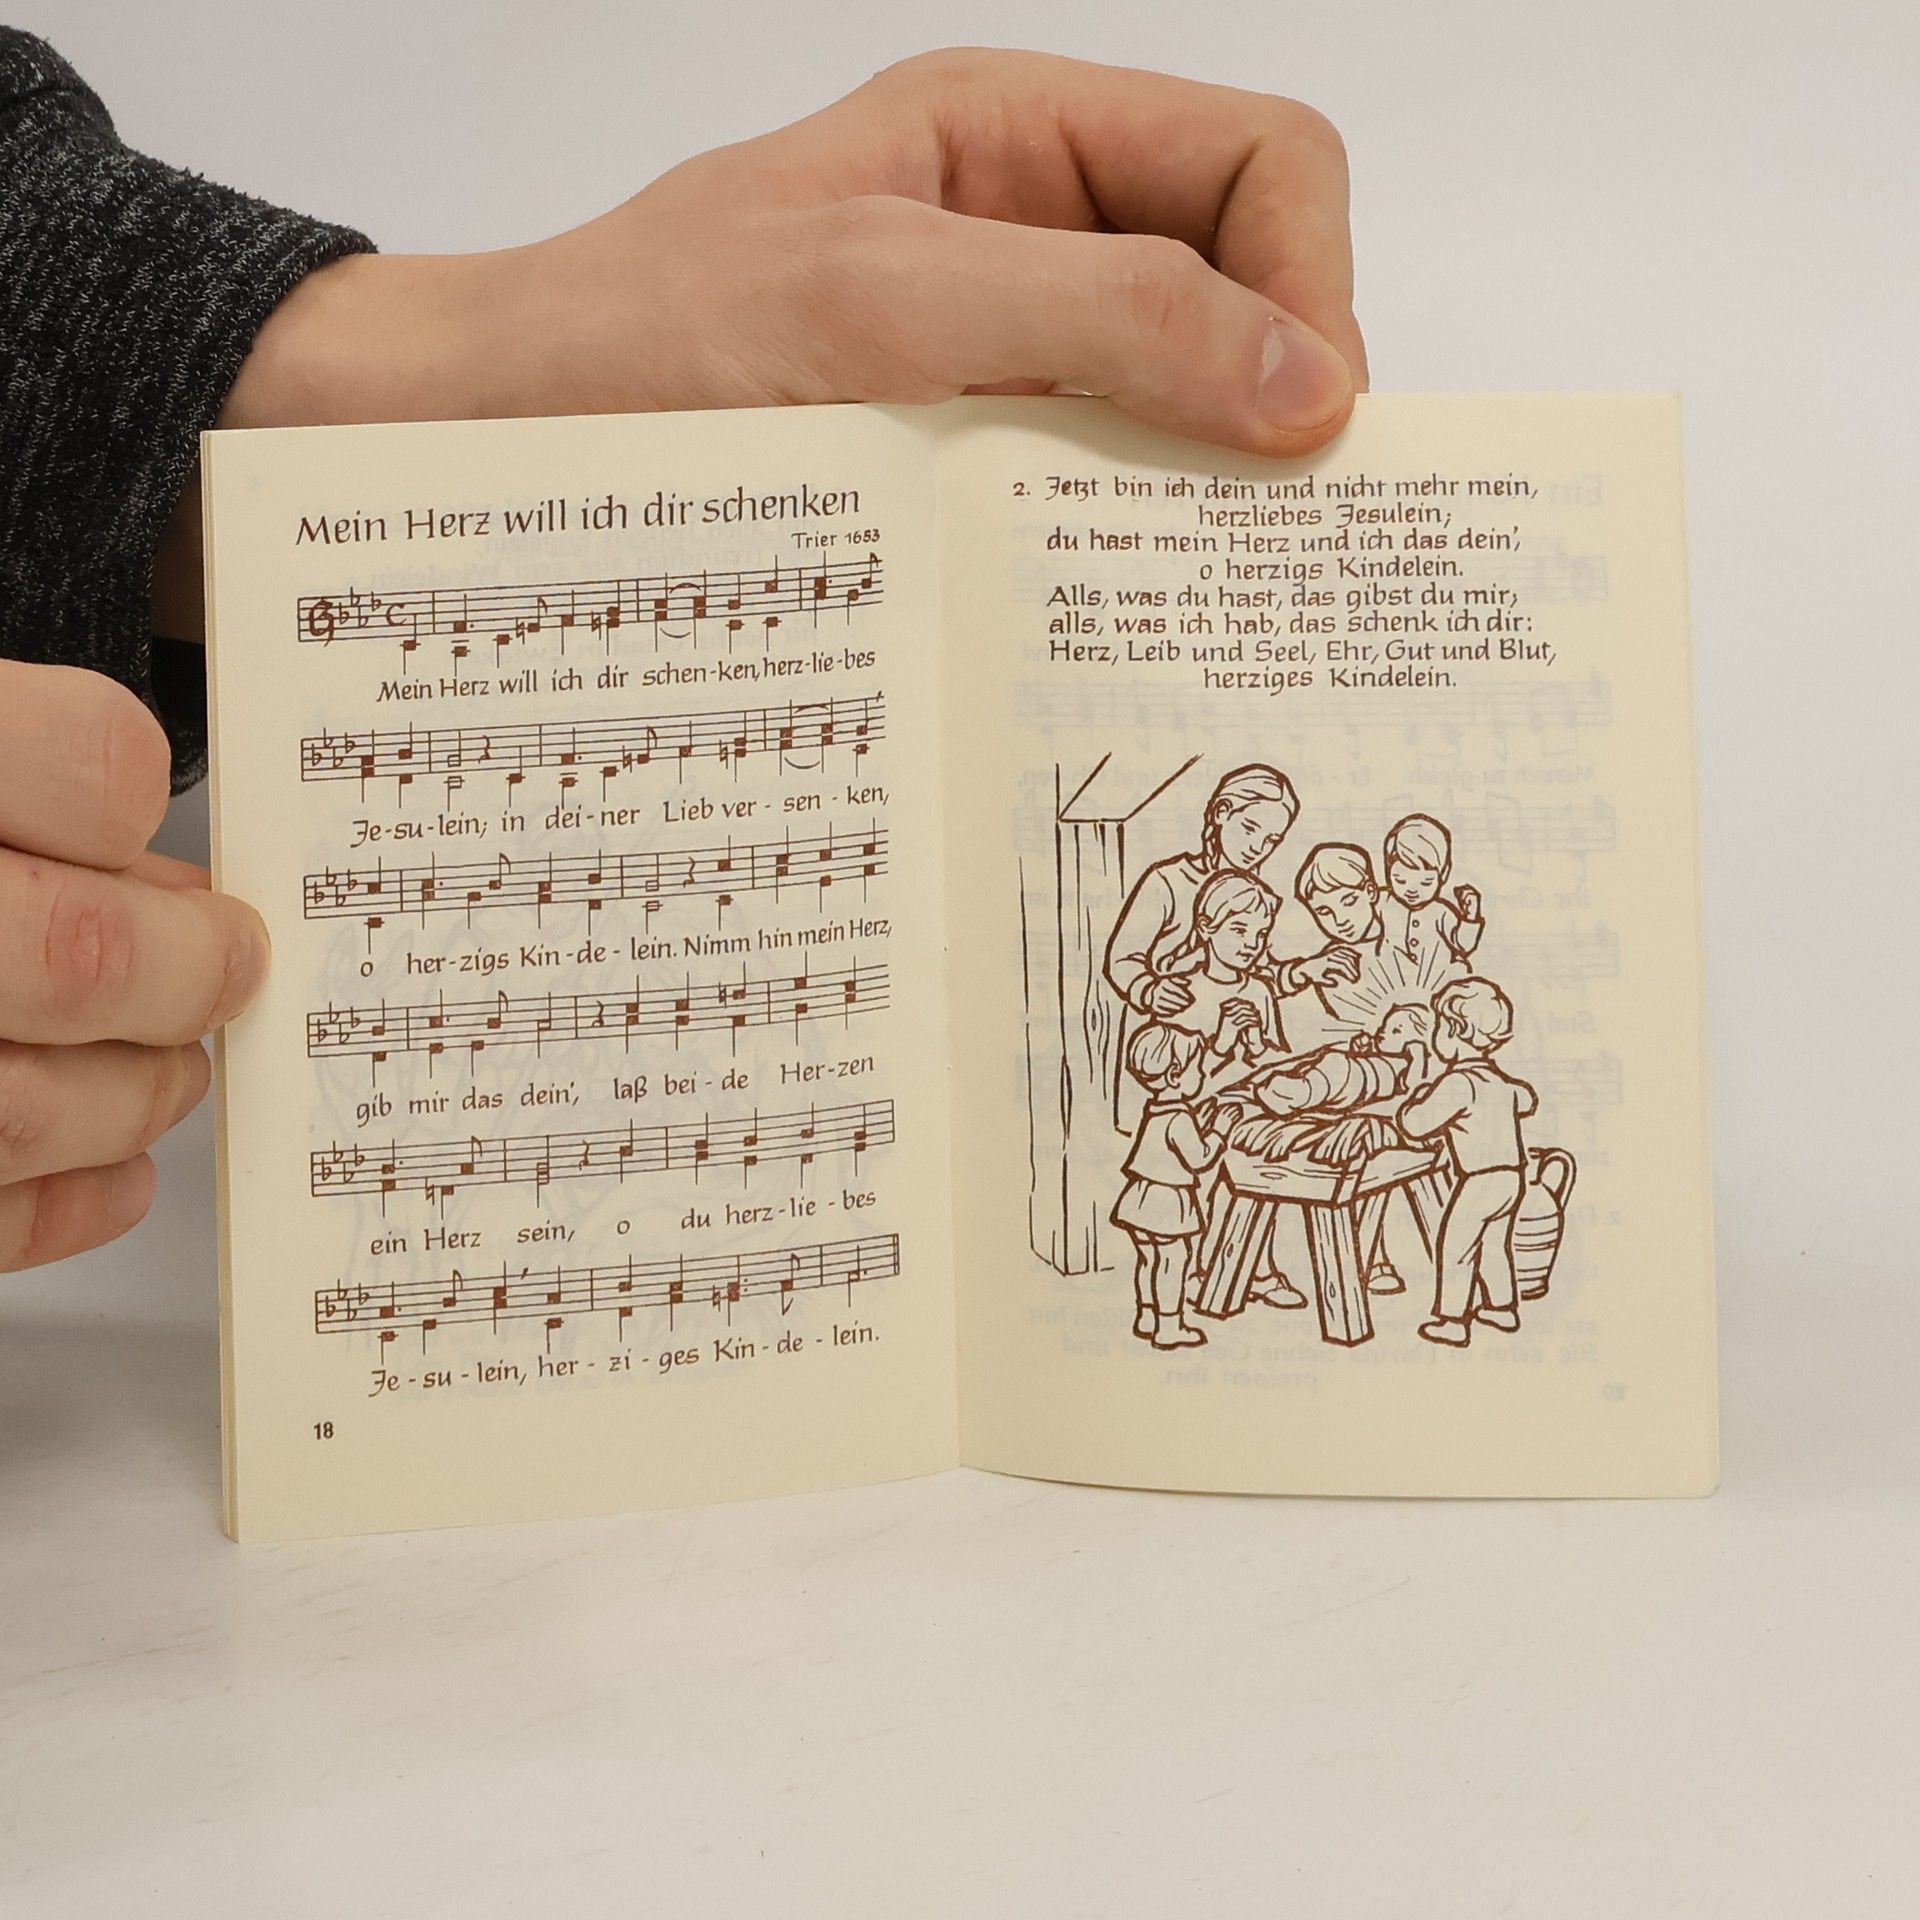 Mein Herz will ich dir schenken
Trier 1653
Mein Herz will ich dir schen-ken, herz-lie-bes
Je-su-lein; in dei-ner Lieb ver-sen-ken,
o her-zigs Kin-de-lein. Nimm hin mein Herz,
gib mir das dein', laß bei-de Her-zen
ein Herz sein, o du herz-lie-bes
Je-su-lein, her-zi-ges Kin-de-lein.
18
2. Jetzt bin ich dein und nicht mehr mein,
herzliebes Jesulein;
du hast mein Herz und ich das dein',
o herzigs Kindelein.
Alls, was du hast, das gibst du mir;
alls, was ich hab, das schenk ich dir:
Herz, Leib und Seel, Ehr, Gut und Blut,
herziges Kindelein.